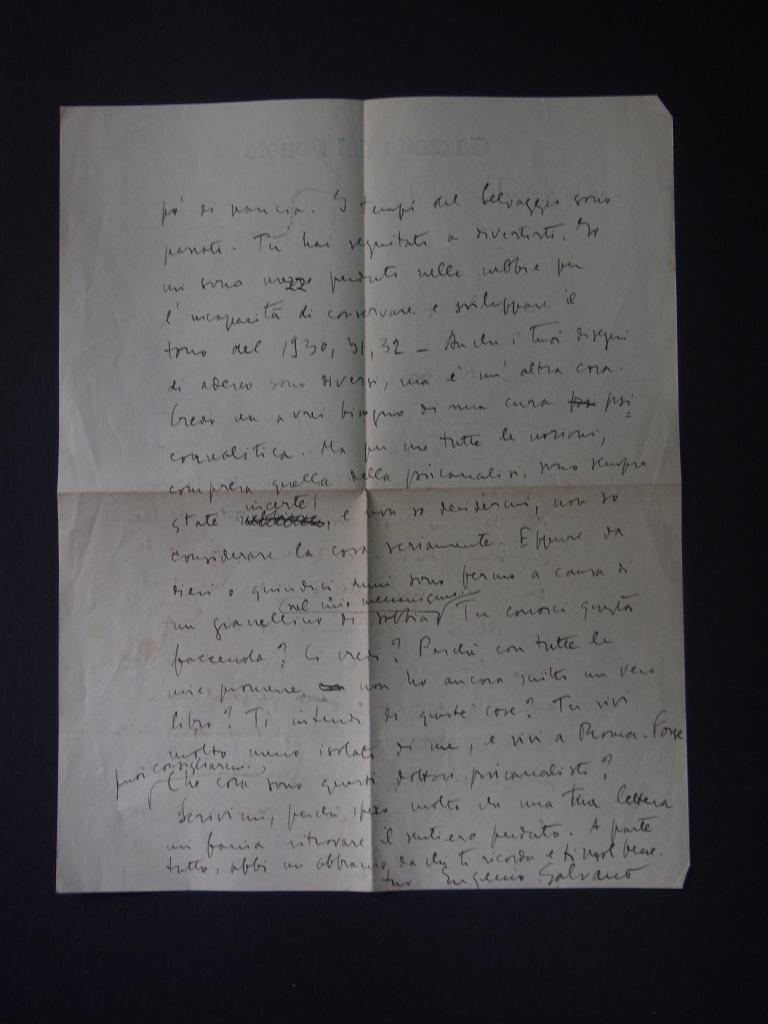 pò di pancia. I tempi del Selvaggio sono
passati. Tu hai seguitato a divertirti. Io
mi sono mezzo perduto nelle nebbie per
l'incapacità di conservare e sviluppare il
tono del 1930, 31, 32 – Anche i tuoi disegni
di adesso sono diversi, ma è un'altra cosa.
Credo che avrei bisogno di una cura psi
coanalitica. Ma per me tutte le nozioni,
compresa quella della psicanalisi, sono sempre
state incerte, e non so decidermi, non so
considerare la cosa seriamente. Eppure da
dieci o quindici anni sono fermo a causa di
un granellino di sabbia (nel mio meccanismo). Tu conosci questa
faccenda? Ci credi? Perché con tutte le
mie promesse non ho ancora scritto un vero
libro? Ti intendi di queste cose? Tu vivi
molto meno isolato di me, e vivi a Roma. Forse
puoi consigliarmi.
Che cosa sono questi dottori psicanalisti?
Scrivimi, perché spero molto che una tua lettera
mi faccia ritrovare il sentiero perduto. A parte
tutto, abbi un abbraccio da chi ti ricorda e ti vuol bene.
tuo Eugenio Galvano